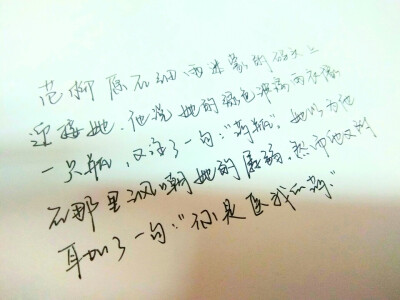 范柳原在细雨迷蒙的码头上
迎接她。他说她的绿色玻璃雨衣像
一只瓶,又注了一句:“药瓶”。她以为他
在那里讽嘲她的孱弱,然而他又附
耳加了一句:“你是医我的药.”